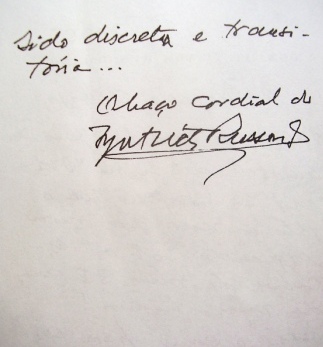 sido discreta e transi-
tória...
Abraço cordial do